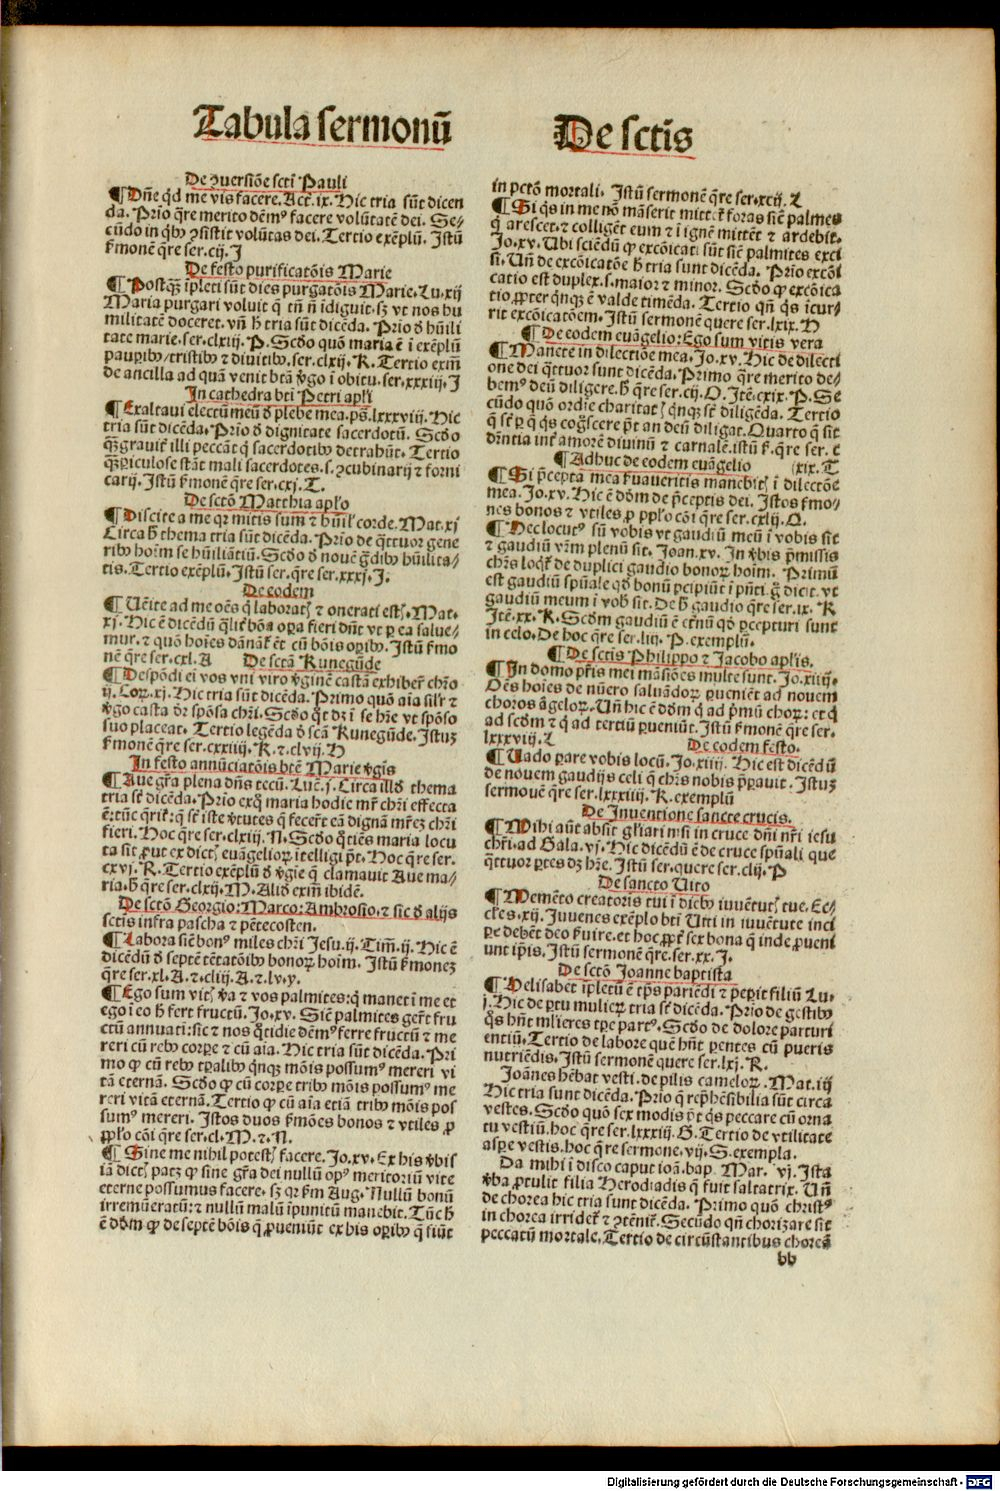 Tabula sermonū
De sctīs
De ꝯuersiōe sctī Pauli
¶ Dn̄e qd me vis facere. Act. ix. Hic tria sūt dicen
da. Prīo q̄re merito dēmꝰ facere volūtatē dei. Se⸗
cūdo in qbꝫ ꝯsistit volūtas dei. Tertio exēplū. Istū
ẜmonē q̄re ser. cij. I
De festo purificatōis Marie
¶ Postqꝫ īpleti sūt dies purgatōis Marie. Lu. xij
Maria purgari voluit q̄ tn̄ n̄ īdiguit. sꝫ vt nos hu
militatē doceret. vn̄ h̄ tria sūt dicēda. Prīo ꝺ hūili
tate marie. ser. clxiij. P. Scꝺo quō maria ē ī exēplū
pauꝑibꝫ/tristibꝫ ⁊ diuitibꝫ. ser. clxij. K. Tertio exīm
de ancilla ad quā venit btā v̄go ī obitu. ser. xxxiij. I
In cathedra bti Petri apl̄i
¶ Exaltaui electū meū ꝺ plebe mea. ps̄. lxxxviij. Hic
tria sūt dicēda. Prīo ꝺ dignitate sacerdotū. Scꝺo
qꝫ grauit̄ illi peccāt q̄ sacerdotibꝫ detrahūt. Tertio
qꝫ ꝑiculose stāt mali sacerdotes. s. ꝯcubinarij ⁊ forni
carij. Istū ẜmonē q̄re ser. cxj. T.
De sctō Matthia apl̄o
¶ Discite a me qꝛ mitis sum ⁊ hūil̄ corde. Mat. xj
Circa h̄ thema tria sūt dicēda. Prīo de q̄ttuor gene
ribꝫ hoīm se hūiliātiū. Scꝺo ꝺ nouē ḡdibꝫ hūilita⸗
tis. Tertio exēplū. Istū ser. q̄re ser. xxxj. I.
De eodem
¶ Uēite ad me oēs q̄ laboratꝭ ⁊ onerati estꝭ. Mat.
xj. Hic ē dicēdū q̄lit̄ bōa oꝑa fieri dn̄t vt ꝑ ea salue⸗
mur. ⁊ quō hoīes dānāt̄ ēt cū bōis oꝑibꝫ. Istū ẜmo
nē q̄re ser. cxl. A De sctā Kunegūde
¶ Despōdi ei vos vni viro v̄ginē castā exhiber̄ chr̄o
ij. Coꝝ. xj. Hic tria sūt dicēda. Primo quō aīa silr̄ ⁊
v̄go casta dr̄ spōsa chr̄i. Scꝺo q̄t dꝫ ī se hr̄e vt spōso
suo placeat. Tertio legēda ꝺ scā Kunegūde. Istuꝫ
ẜmonē q̄re ser. cxxiiij. K. ⁊. clvij. H
In festo annūciatōis btē Marie v̄gīs
¶ Aue gr̄a plena dn̄s tecū. Luē. j. Circa illꝺ thema
tria st̄ dicēda. Prīo exq̄ maria hodie mr̄ chr̄i effecta
ē: tūc q̄rit̄: q̄ st̄ iste v̄tutes q̄ fecer̄t eā dignā mr̄ez chr̄i
fieri. Hoc q̄re ser. clxiij. N. Scꝺo q̄tiēs maria locu
ta sit ꝓut ex dictꝭ euāgelioꝝ ītelligi pt̄. Hoc q̄re ser.
cxvj. K. Tertio exēplū ꝺ v̄gīe q̄ clamauit Aue ma⸗
ria. h̄ q̄re ser. clxij. M. Aliꝺ exīm ibidē.
De sctō Georgio: Marco: Ambrosio. ⁊ sic ꝺ alijs
sctis infra pascha ⁊ pētecosten.
¶ Labora siē bonꝰ miles chr̄i Jesu. ij. Tim̄. ij. Hic ē
dicēdū ꝺ septē tētatōibꝫ bonoꝝ hoīm. Istū ẜmonez
q̄re ser. xl. A. ⁊. cliij. A. ⁊. lv. y.
¶ Ego sum vitꝭ v̄a ⁊ vos palmites: q̄ manet ī me et
ego ī eo h̄ fert fructū. Jo. xv. Siē palmites ger̄t fru
ctū annuatī: sic ⁊ nos q̄tidie dēmꝰ ferre fructū ⁊ me
reri cū rebꝫ corꝑe ⁊ cū aīa. Hic tria sūt dicēda. Pri
mo ꝙ cū rebꝫ tꝑalibꝫ q̄nqꝫ mōis possumꝰ mereri vi
tā eternā. Scꝺo ꝙ cū corꝑe tribꝫ mōis possumꝰ me
reri vitā eternā. Tertio ꝙ cū aīa etiā tribꝫ mōis pos
sumꝰ mereri. Istos duos ẜmōes bonos ⁊ vtiles ꝓ
pplo cōi q̄re ser. cl. M. ⁊. N.
¶ Sine me nihil potestꝭ facere. Jo. xv. Ex his v̄bis
iā dictꝭ patꝫ ꝙ sine gr̄a dei nullū opꝰ meritoriū vite
eterne possumus facere. sꝫ qꝛ ẜm Aug. Nullū bonū
irremūeratū: ⁊ nullū malū īpunitū manebit. Tūc h̄
ē dōm ꝙ de septē bōis q̄ ꝓueniūt ex his oꝑibꝫ q̄ fiūt
in pctō mortali. Istū sermonē q̄re ser. xcij. L
¶ Si q̄s in me nō māserit mittet̄ foras siē palmes
q̄ arescet. ⁊ colligēt eum ⁊ ī ignē mittēt ⁊ ardebit.
Jo. xv. Ubi sciēdū ꝙ excōicati sūt siē palmites exci
si. Un̄ de excōicatōe h̄ tria sunt dicēda. Prīo excōi
catio est duplex. s. maior ⁊ minor. Scꝺo ꝙ excōica
tio ꝓpter q̄nqꝫ ē valde timēda. Tertio qn̄ q̄s īcur⸗
rit excōicatōem. Istū sermonē quere ser. lxix. H
¶ De eodem euāgelio: Ego sum vitis vera
¶ Manete in dilectiōe mea. Jo. xv. Hic de dilecti
one dei q̄ttuor sunt dicēda. Primo q̄re merito de⸗
bemꝰ deū diligere. h̄ q̄re ser. cij. O. Itē. cxix. P. Se
cūdo quō ordie charitatꝭ q̄nqꝫ st̄ diligēda. Tertio
q̄ st̄ ꝑ q̄ q̄s coḡscere pt̄ an deū diligat. Quarto q̄ sit
dr̄ntia int̄ amorē diuinū ⁊ carnalē. istū ẜ. q̄re ser. c
¶ Adhuc de eodem euāgelio (xix. T
¶ Si p̄cepta mea ẜuaueritis manebitꝭ ī dilectōe
mea. Jo. xv. Hic ē dōm de p̄ceptis dei. Istos ẜmo⸗
nes bonos ⁊ vtiles ꝓ pplo cōi q̄re ser. cxlij. O.
¶ Hec locutꝰ sū vobis vt gaudiū meū ī vobis sit
⁊ gaudiū vr̄m plenū sit. Joan. xv. In v̄bis p̄missis
chr̄s loqt̄ de duplici gaudio bonoꝝ hoīm. Primū
est gaudiū spūale qꝺ bonū ꝑcipiūt ī pn̄ti. ḡ dicit. vt
gaudiū meum ī vob̄ sit. De h̄ gaudio q̄re ser. ix. K
Itē. xx. K. Scdm gaudiū ē et̄nū qꝺ ꝑcepturi sunt
in celo. De hoc q̄re ser. liij. P. exemplū.
¶ De sctis Philippo ⁊ Jacobo apl̄is.
¶ In domo pr̄is mei māsiōes multe sunt. Jo. xiiij.
Oēs hoīes de nūero saluādoꝝ ꝑueniēt ad nouem
choros āgeloꝝ. Un̄ hic ē dōm q̄ ad p̄mū choꝝ: et q̄
ad scdm ⁊ q̄ ad tertiū ꝑueniūt. Istū ẜmonē q̄re ser.
lxxxviij. L De eodem festo.
¶ Uado parare vobis locū. Jo. xiiij. Hic est dicēdū
de nouem gaudijs celi q̄ chr̄s nobis p̄parauit. Istuꝫ
sermonē q̄re ser. lxxxiiij. K. exemplū
De Inuentione sancte crucis.
¶ Mihi aūt absit gl̄iari nisi in cruce dn̄i nr̄i iesu
chr̄i. ad Gala. vj. Hic dicēdū ē de cruce spūali que
q̄ttuor ꝑtes dꝫ hr̄e. Istū ser. quere ser. clij. P
De sancto Uito
¶ Memēto creatoris tui ī diebꝫ iuuētutꝭ tue. Ec⸗
cle̅s. xij. Juuenes exēplo bti Uiti in iuuētute inci
ꝑe debēt deo ẜuire. et hoc ꝓpt̄ sex bona q̄ inde ꝓueni
unt ip̄is. Istū sermonē q̄re. ser. xx. I.
De sctō Joanne baptista
¶ Helisabet īpletū ē tp̄s pariēdi ⁊ peꝑit filiū Lu.
j. Hic de ꝑtu mulieꝝ tria st̄ dicēda. Prīo de gestibꝫ
q̄s hn̄t ml̄ieres tꝑe partꝰ. Scꝺo de dolore parturi
entiū. Tertio de labore quē hn̄t ꝑentes cū pueris
nutriēdis. Istū sermonē quere ser. lxj. K.
Joānes hēbat vesti. de pilis cameloꝝ. Mat. iij
Hic tria sunt dicēda. Prīo q̄ rep̄hēsibilia sūt circa
vestes. Scꝺo quō sex modis pt̄ q̄s peccare cū orna
tu vestiū. hoc q̄re ser. lxxxiij. G. Tertio de vtilitate
asꝑe vestis. hoc q̄re sermone. vij. S. exempla.
Da mihi ī disco caput ioā. bap. Mar. vj. Ista
v̄ba ꝓtulit filia Herodiadis q̄ fuit saltatrix. Un̄
de chorea hic tria sunt dicēda. Primo quō christꝰ
in chorea irridet̄ ⁊ ꝯtēnit̄. Secūdo qn̄ chorizare sit
peccatū mortale. Tertio de circūstantibus choreā
bb
Digitalisierung gefördert durch die Deutsche Forschungsgemeinschaft - DFG